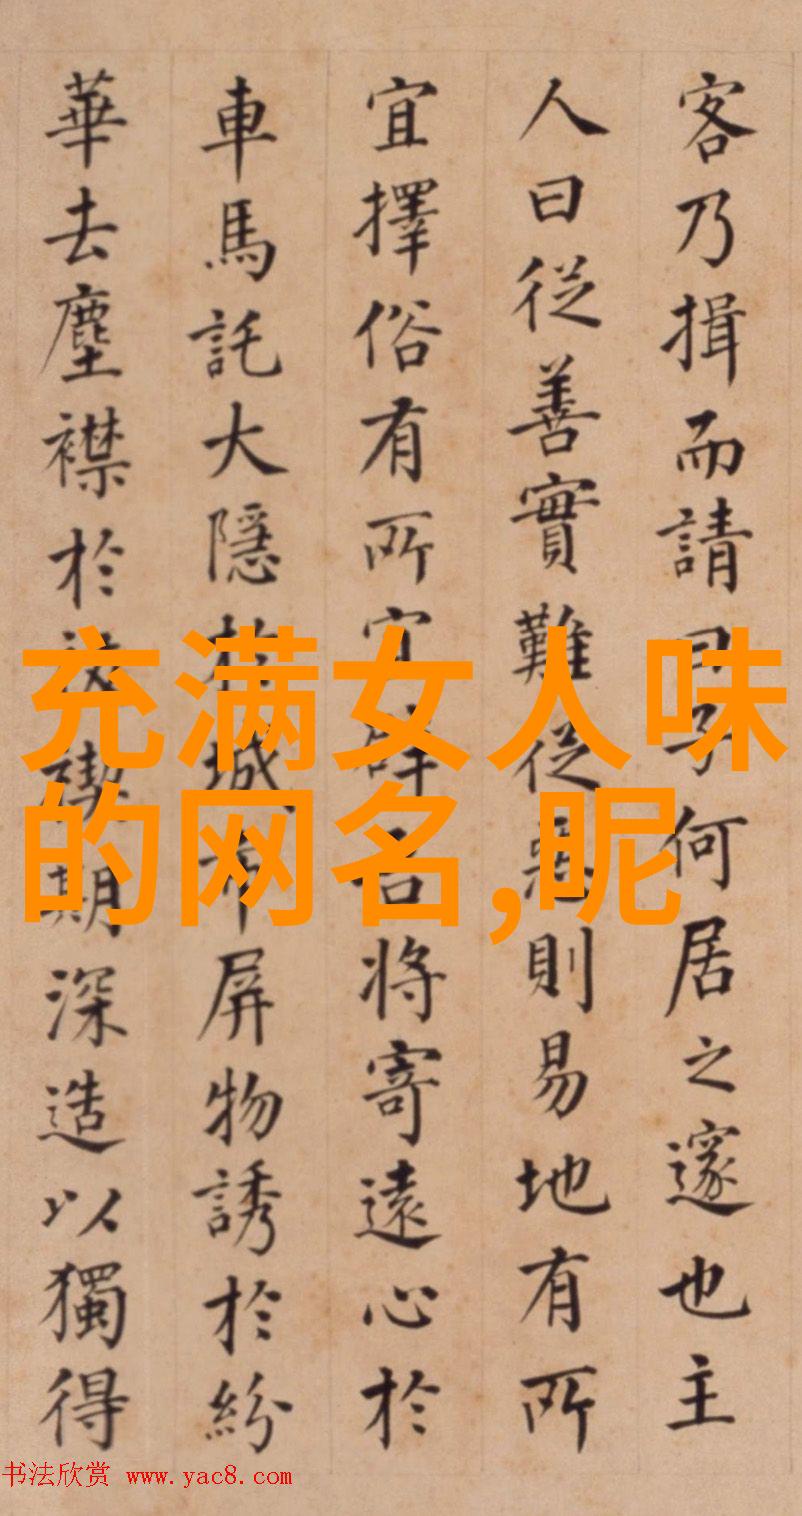 客乃揖而請曰子何居之邃也主
人曰從善實難從惡則易地有所
宜擇俗有所宜將寄遠心於
車馬託大隱於城市屏物誘於紛
華去塵襟於期深造以獨得
充满女人味
的网名,昵
书法欣赏 www.yac8.com